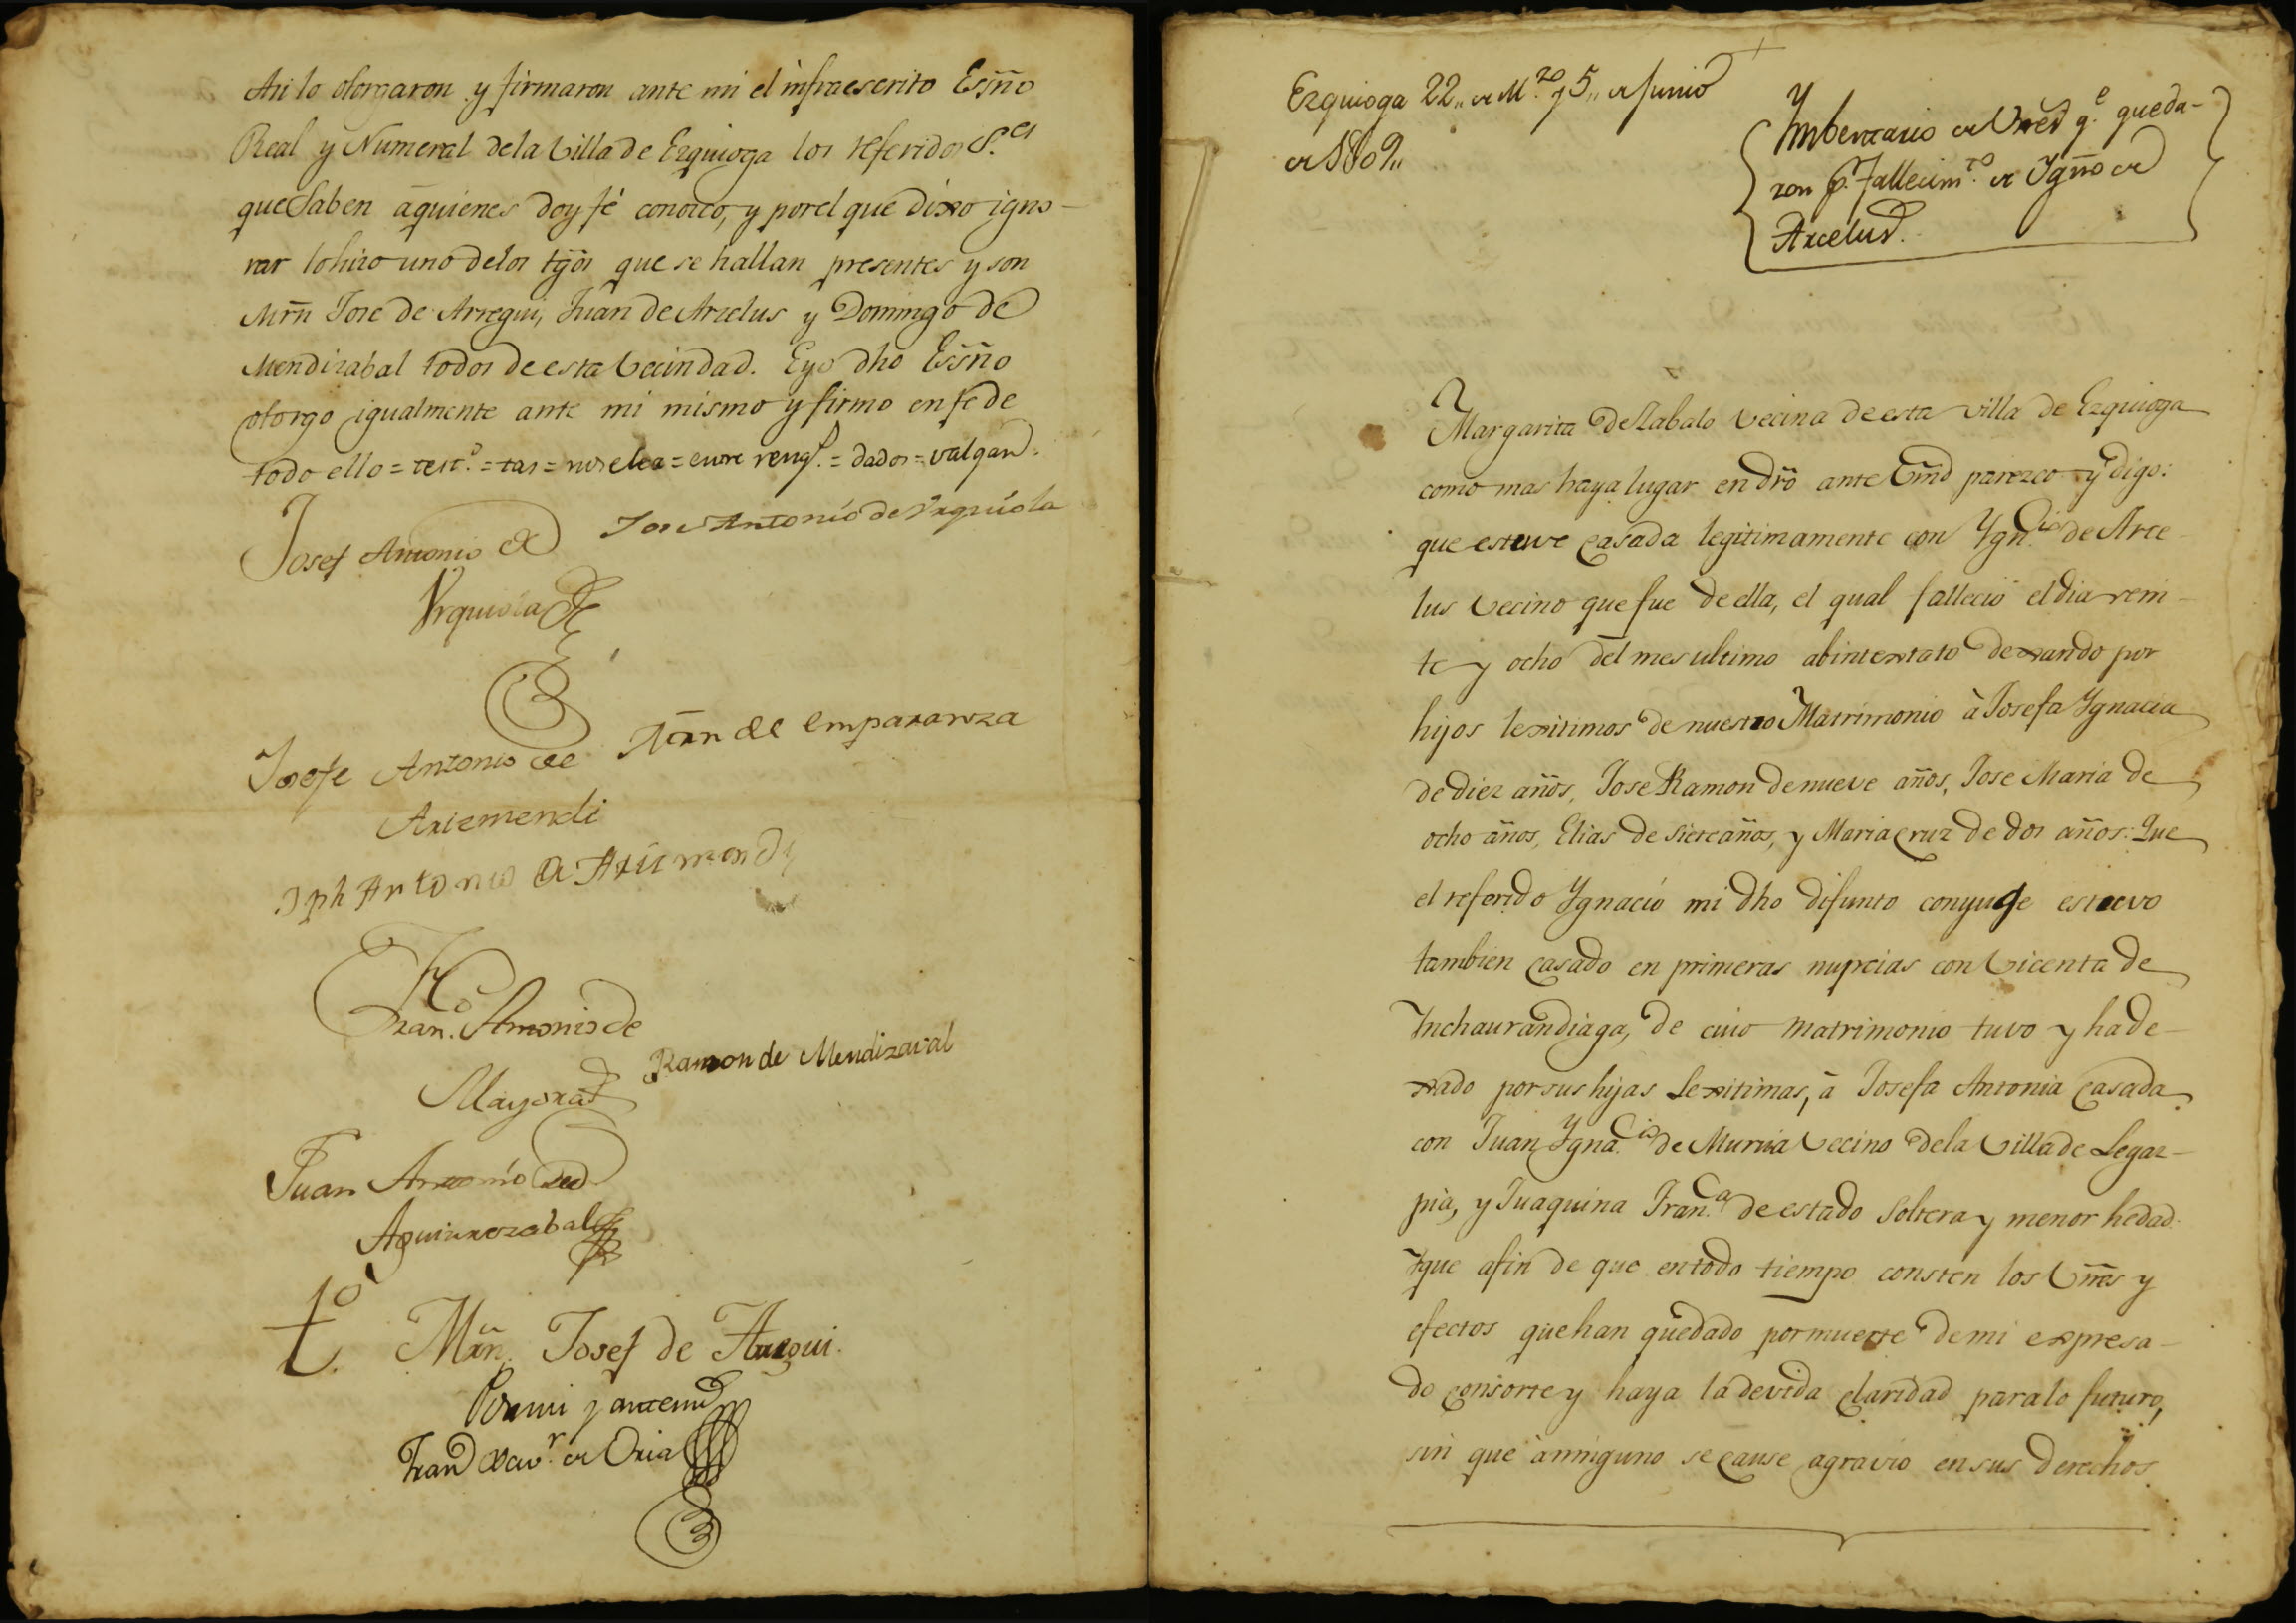 Asi lo otorgaron y firmaron ante mi el infraescrito Essño
Real y Numeral dela Villa de Ezquioga los referidos S.es
que saben aquienes doy fé conozco, y por el que dixo igno-
rar lo hizo uno delos tgôs que se hallan presentes y son
Mrñ Jose de Arregui, Juan de Arcelus y Domingo de
Mendizabal todos de esta Vecindad. E yo dho Essño
otorgo igualmente ante mi mismo y firmo en fe de
todo ello = = tas = = entre reng.s = dados = valgan.
Josef Antonio de
Jose Antonio de Vrquiola
Vrquiola
Josefe Antonio de
Arizmendi
de Emparanza
Jph Antonio de Arizmendi
Fran.co Antonio de
Mayora
Ramon de Mendizaval
Juan Antonio de
Aguirrezabal
t.º Mrñ Josef de Arregui.
Por mi y ante mi
Fran Xav.r de Oria
Ezquioga 22,, de M.zo y 5,, de Junio
de 1809,,
Ymbentario de Vnes q.e queda-
ron p.r fallecim.to de Ygño de
Arcelus.
Margarita de Zabalo Vecina de esta Villa de Ezquioga
como mas haya lugar en drõ ante Vmd parezco y digo:
que estuve casada legitimamente con Ygn.cio de Arce-
lus Vecino que fue de ella, el qual falleció el dia vein-
te y ocho del mes ultimo abintextato dexando por
hijos lexitimos de nuestro Matrimonio à Josefa Ygnacia
de diez años, Jose Ramon de nueve años, Jose Maria de
ocho años, Elias de siete años, y Maria Cruz de dos años: Que
el referido Ygnacio mi dho difunto conyuge estuvo
tambien casado en primeras nupcias con Vicenta de
Ynchaurandiaga, de cuio matrimonio tuvo y ha de-
xado por sus hijas Lexitimas, à Josefa Antonia casada
con Juan Ygna.cio de Murua Vecino dela Villa de Legaz-
pia, y Juaquina Fran.ca de estado Soltera y menor hedad.
Yque afin de que entodo tiempo consten los Vnes y
efectos que han quedado por muerte de mi expresa-
do consorte y haya la devida claridad para lo futuro,
sin que àninguno se cause agravio en sus derechos